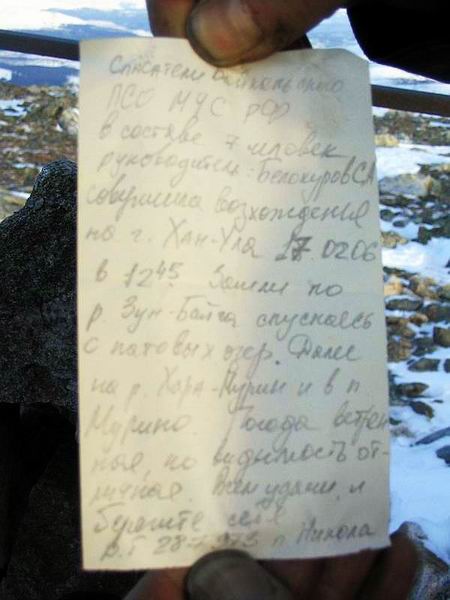 Спасатели Байкальского
ПСО МЧС РФ
в составе 7 человек
руководитель: Белокуров С.А
совершила возхождение
на г. Хан-Ула 17.02.06
в 12 45 Зашли по
р. Зун-Байга спускаясь
с патовых озер. Далее
на р. Хара-Мурин и в п.
Мурино. Погода ветрен
ная, но видимость от-
личная. Всем удачи, и
берегите себя
п. Никола